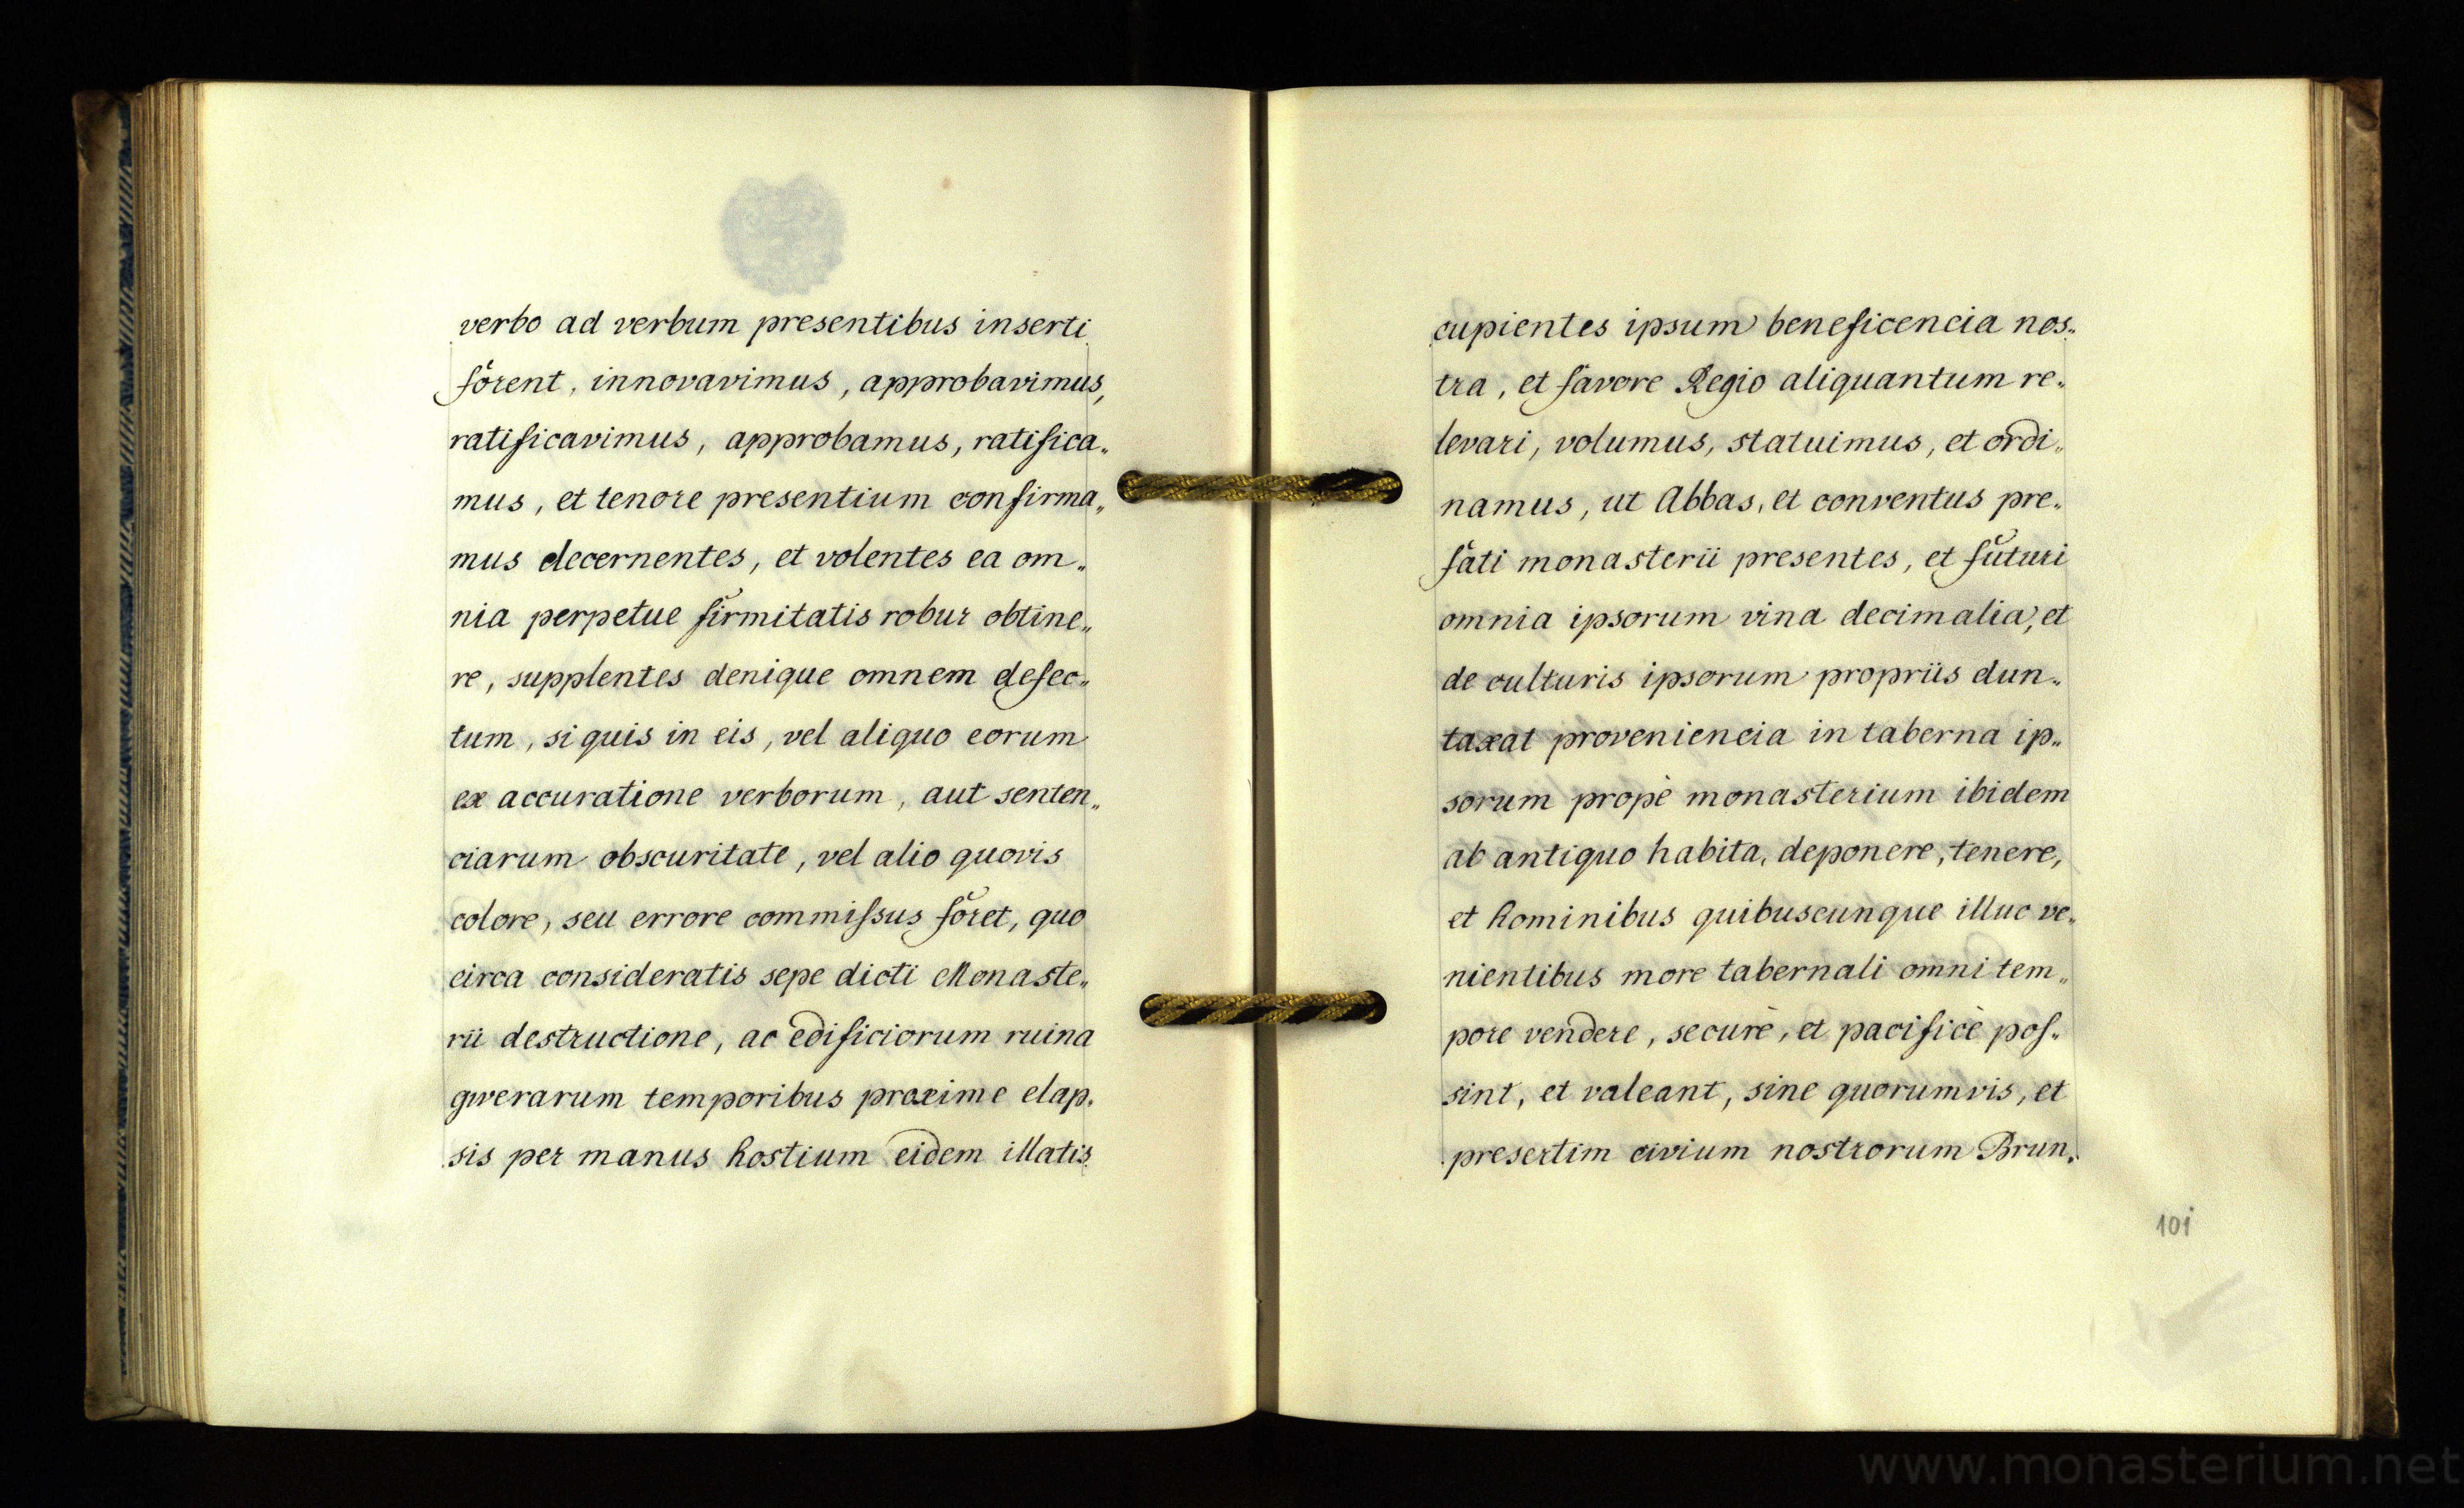 verbo ad verbum presentibus inserti
forent, innovavimus, approbavimus,
ratificavimus, approbamus, ratifica„
mus, et tenore presentium confirma„
mus decernentes, et volentes ea om„
nia perpetue firmitatis robur obtine„
re, supplentes denique omnem defec„
tum, si quis in eis, vel aliquo eorum
ex accuratione verborum, aut senten„
ciarum obscuritate, vel alio quovis
colore, seu errore commiſsus foret, quo
circa consideratis sepe dicti Monaste„
rii destructione, ac edificiorum ruina
gwerarum temporibus proxime elap„
sis per manus hostium eidem illatis
cupientes ipsum beneficencia nos„
tra, et favore Regio aliquantum re„
levari, volumus, statuimus, et ordi„
namus, ut Abbas, et conventus pre„
fati monasterii presentes, et futuri
omnia ipsorum vina decimalia, et
de culturis ipsorum propriis dun„
taxat proveniencia in taberna ip„
sorum propè monasterium ibidem
ab antiquo habita, deponere, tenere,
et hominibus quibuscunque illuc ve„
nientibus more tabernali omni tem„
pore vendere, securè, et pacificè poſ„
sint, et valeant, sine quorumvis, et
presertim civium nostrorum Brun„
101
www.monasterium.net